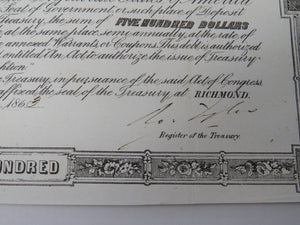 Seal of Government
Treasury, the sum of FIVE HUNDRED DOLLARS
at the same place semi-annually, at the rate of
annexed Warrants or Coupons. This debt is authorized
entitled An Act to authorize the issue of Treasury
Treasury, in pursuance of the said Act of Congress
affixed the seal of the Treasury at RICHMOND.
186
Register of the Treasury
HUNDRED